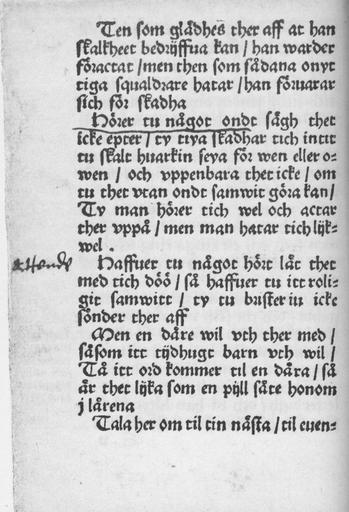 Ten som glådhes ther aff at han
skalkheet bedrijffua kan / han warder
föractat / men then som sådana onyt
tiga squaldrare hatar / han förwarar
sich för skadha
Hörer tu något ondt sågh thet
icke epter / ty tiya skadhar tich intit
tu skalt huarkin seya för wen eller o-
wen / och vppenbara thet icke / om
tu thet vtan ondt samwit göra kan /
Ty man hörer tich wel och actar
ther vppå / men man hatar tich lijk-
wel.
Haffuer tu något hört låt thet
med tich döö / så haffuer tu itt roli-
git samwitt / ty tu brister iu icke
sönder ther aff
Men en dåre wil vth ther med /
såsom itt tijdhugt barn vth wil /
Tå itt ord kommer til en dåra / så
år thet lijka som en pijll såte honom
j lårena
Tala her om til tin nåsta / til euen-